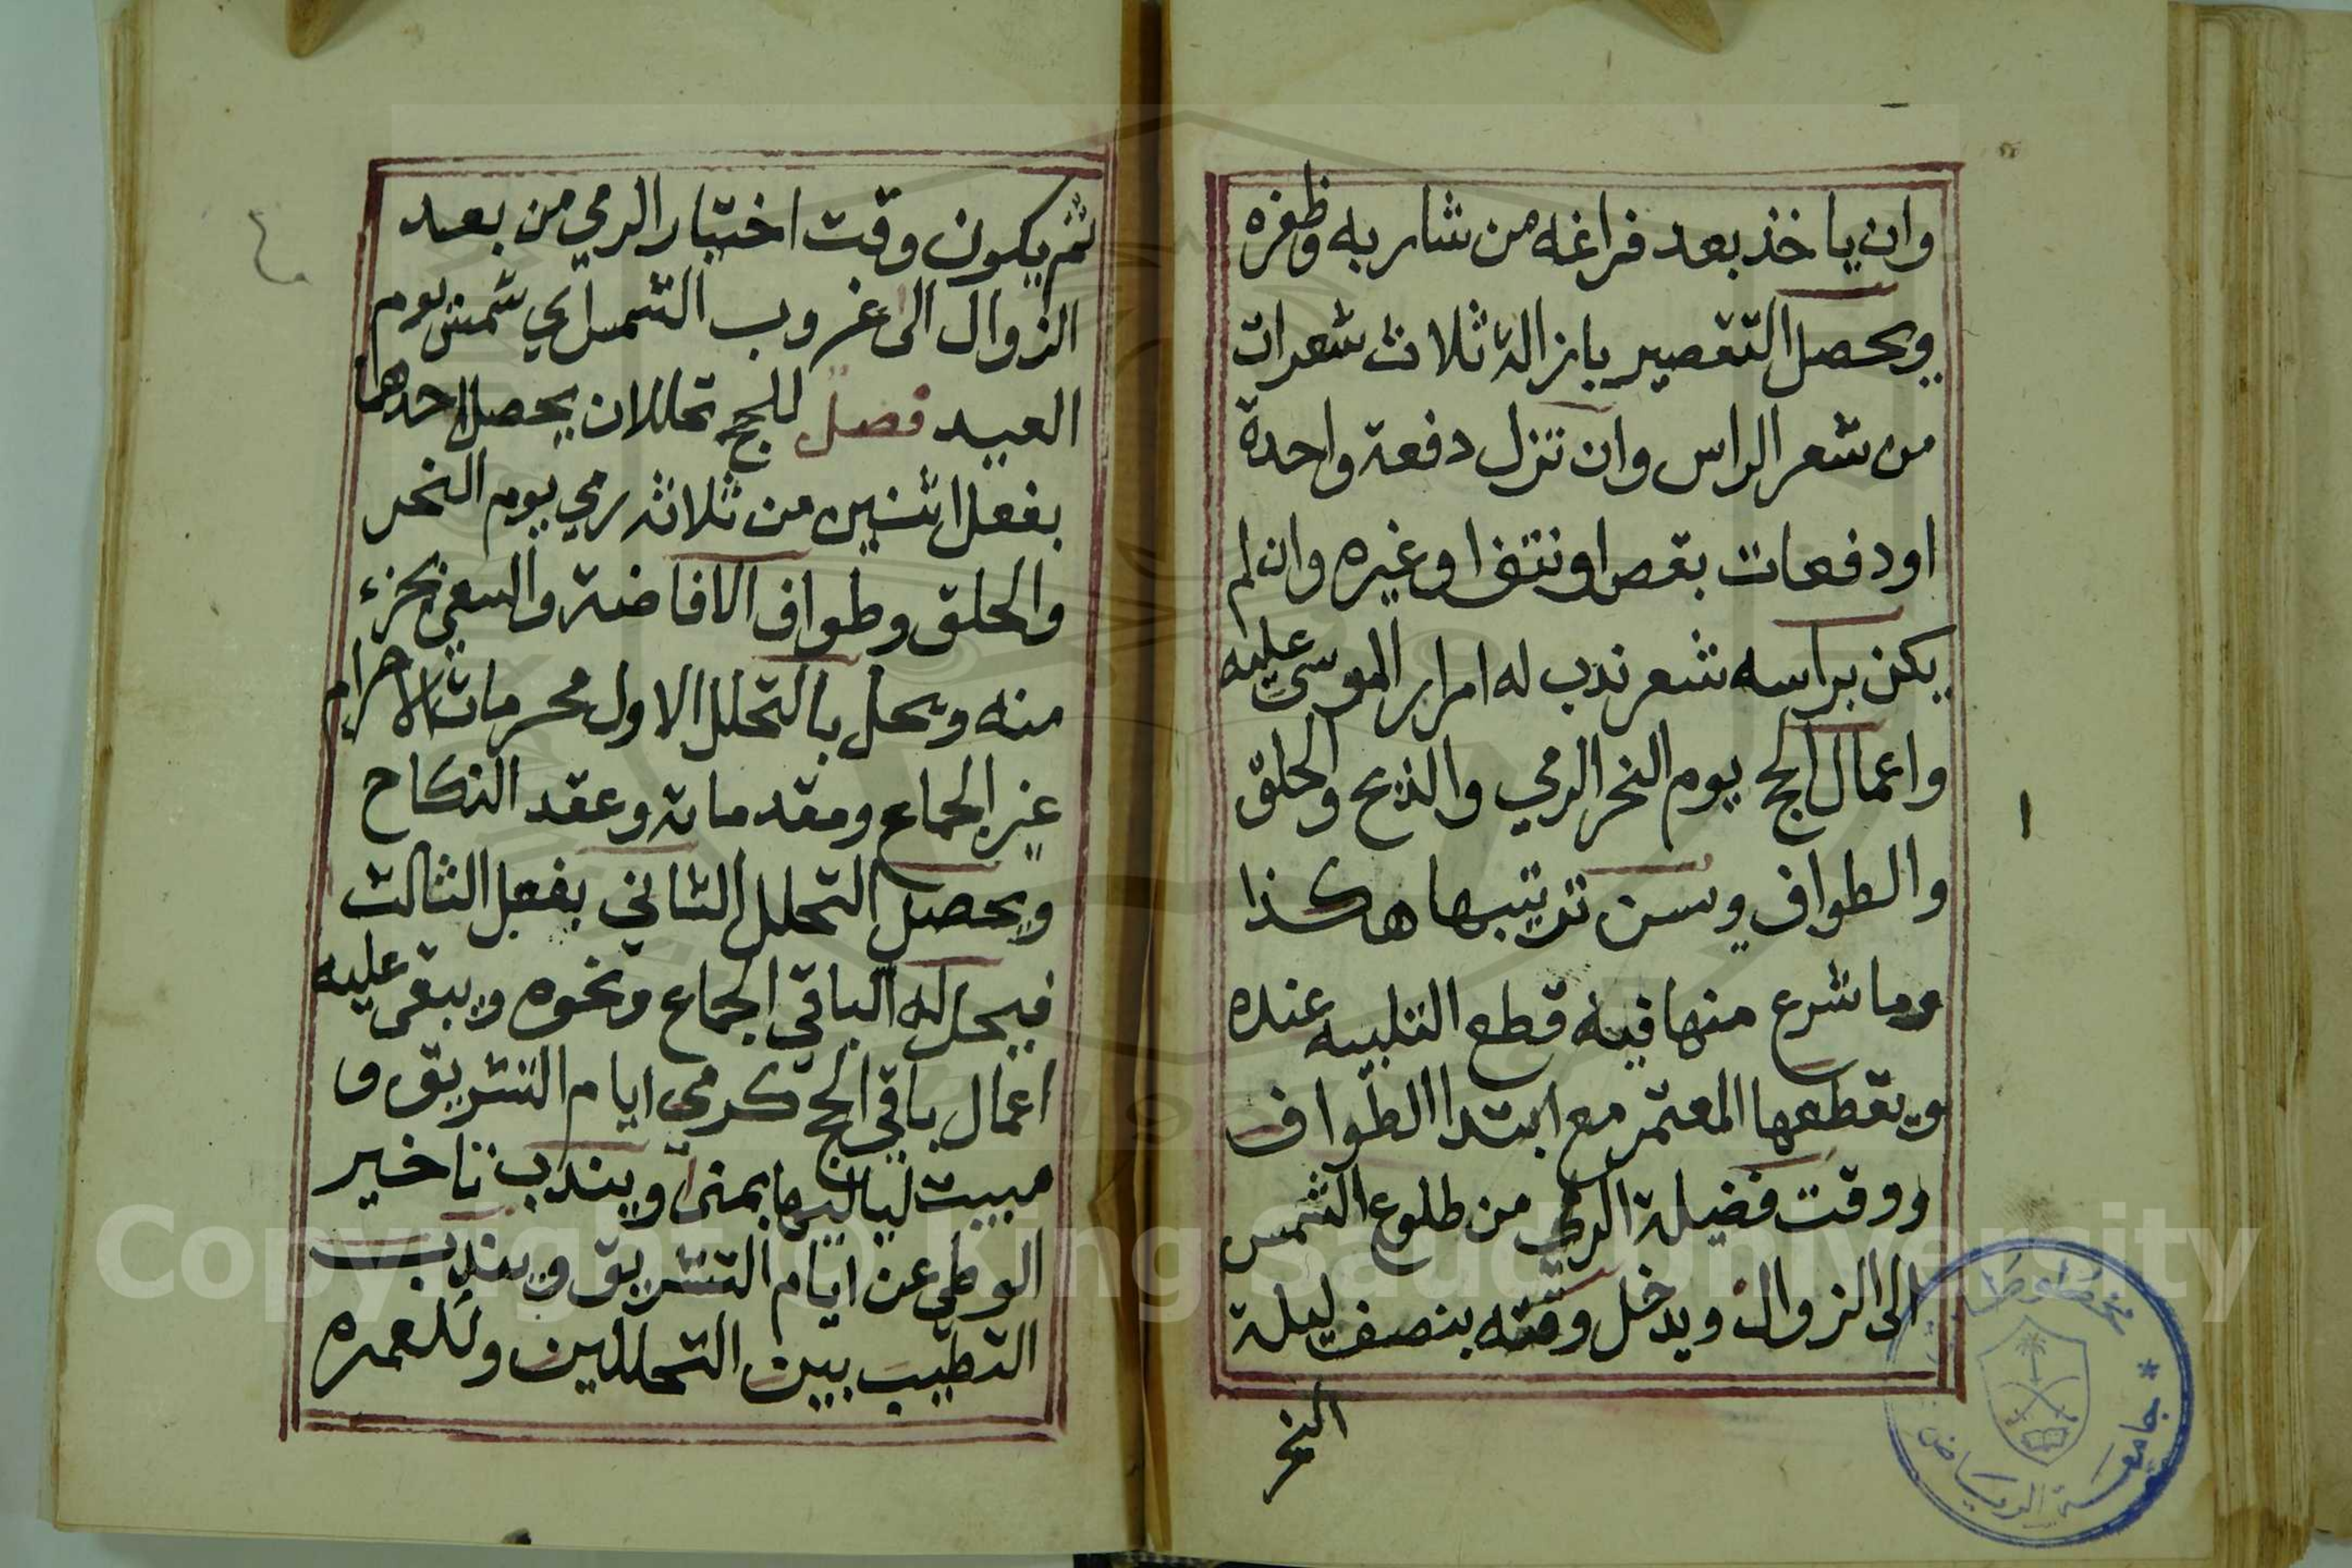 وان ياخذ بعد فراغه من شاربه وظفره
ويحصل التقصير بازالة ثلاث شعرات
من شعر الراس وان تنزل دفعة واحدة
او دفعات بقص او نتف او غيره وان لم
يكن براسه شعر ندب له امرار الموسى عليه
واعمال الحج يوم النحر الرمي والذبح والحلق
والطواف ويسن ترتيبها هكذا
وما شرع منها فيه قطع التلبيه عنده
ويقطعها المعتمر مع ابتدا الطواف
ووقت فضيلة الرمي من طلوع الشمس
الى الزوال ويدخل وقته بنصف ليلة
النحر
ثم يكون وقت اختيار الرمي من بعد
الزوال الى غروب الشمس اي شمس يوم
العيد فصل للحج تحللان يحصل احدهما
بفعل اثنين من ثلاثه رمي يوم النحر
والحلق وطواف الافاضة والسعي بجزء
منه ويحل بالتحلل الاول محرمات الاحرام
غير الجماع ومقدماته وعقد النكاح
ويحصل التحلل الثاني بفعل الثالث
فيحل له الباقي الجماع ونحوه ويبقى عليه
اعمال باقي الحج كرمي ايام التشريق و
مبيت لياليها بمنى ويندب تاخير
الوطي عن ايام التشريق ويندب
التطيب بين التحللين وللعمره
مخطوطات
* جامعة الرياض
Copyright © King Saud University